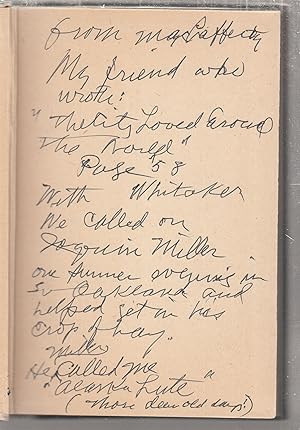 from McLafferty
My friend who
wrote:
"The City Loved Around
the World"
Page 58
With Whitaker
We called on
Joaquin Miller
one summer evening in
in Oakland and
helped get in his
crop of hay.
Miller
He called me
"Alaska Lute"
(Those dear old days!)